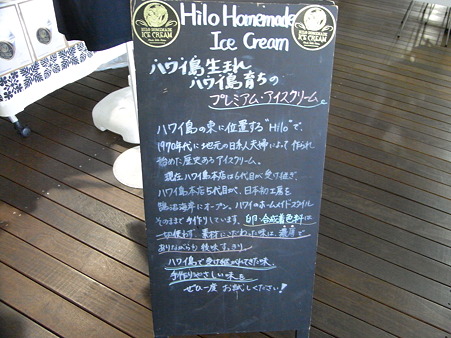 HILO HOMEMADE
ICE CREAM
Hilo Homemade
Ice Cream
ハワイ島生まれ
ハワイ島育ちの
プレミアム・アイスクリーム。
ハワイ島の東に位置する"Hilo"で、
1970年代に地元の日本人夫婦によって作られ
始めた歴史あるアイスクリーム。
現在ハワイ島本店は6代目が受け継ぎ、
ハワイ島本店5代目が、日本初工房を
鵠沼海岸にオープン。ハワイのホームメイドスタイル
そのままで手作りしています。卵・合成着色料は
一切使わず、素材にこだわった味は、濃厚で
ありながらも後味すっきり。
ハワイ島で受け継がれてきた味、
手作りのやさしい味を
ぜひ一度お試しください!